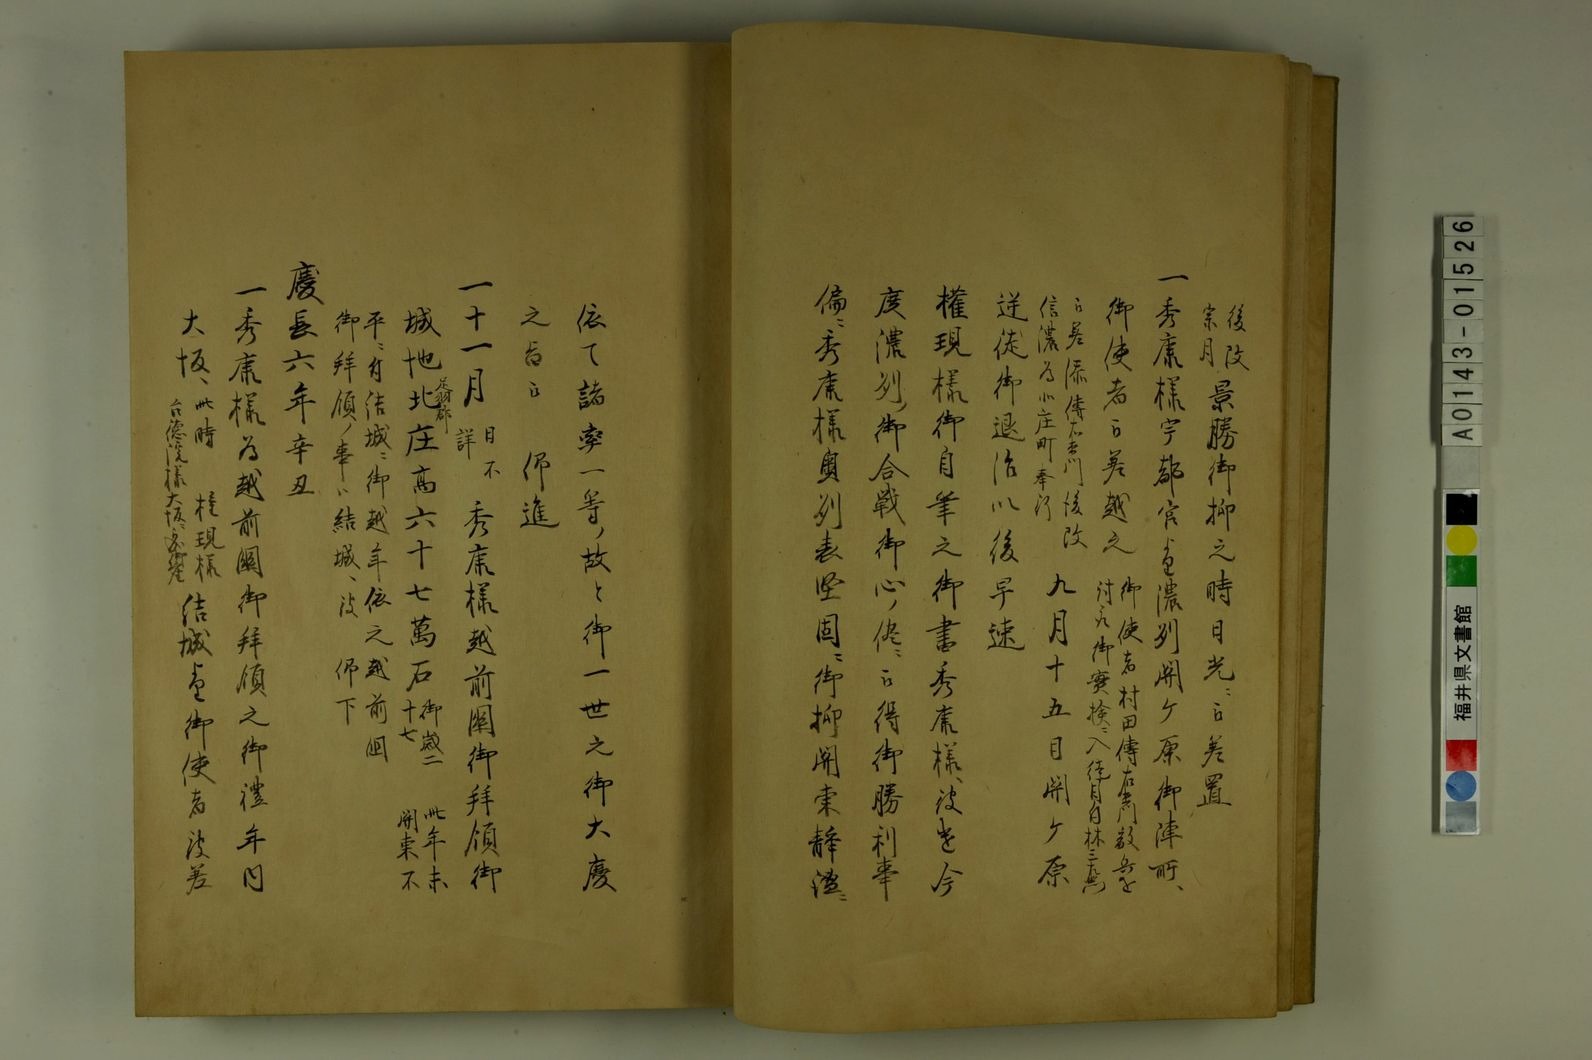 後改
宗月
景勝御抑之時日光ニ被差置
一秀康様宇都宮ゟ濃列関ヶ原御陣所、
御使者被差越之
御使者村田傳右衛門敵兵を
討取御實検ニ入
被差添傳右衛門後改
信濃為北庄町奉行
九月十五日関ヶ原
逆徒御退治以後早速
權現様御自筆之御書秀康様、被進今
度濃列ノ御合戦御心ノ侭ニ被得御勝利事
偏ニ秀康様奥列表堅固ニ御抑関東静謐ニ
依て諸率一等ノ故と御一世之御大慶
之旨被 仰進
一十一月
日不
詳
秀康様越前國御拝領御
城地北庄高六十七萬石
足羽郡
御歳二
十七
此年未
関東不
平ニ付結城ニ御越年依之越前国
御拝領ノ事ハ結城、被 仰下
慶長六年辛丑
一秀康様為越前國御拝領之御禮年内
大坂、
此時 権現様
台徳院様大坂ニ
結城ゟ御使者被差
A0143-01526
福井県文書館